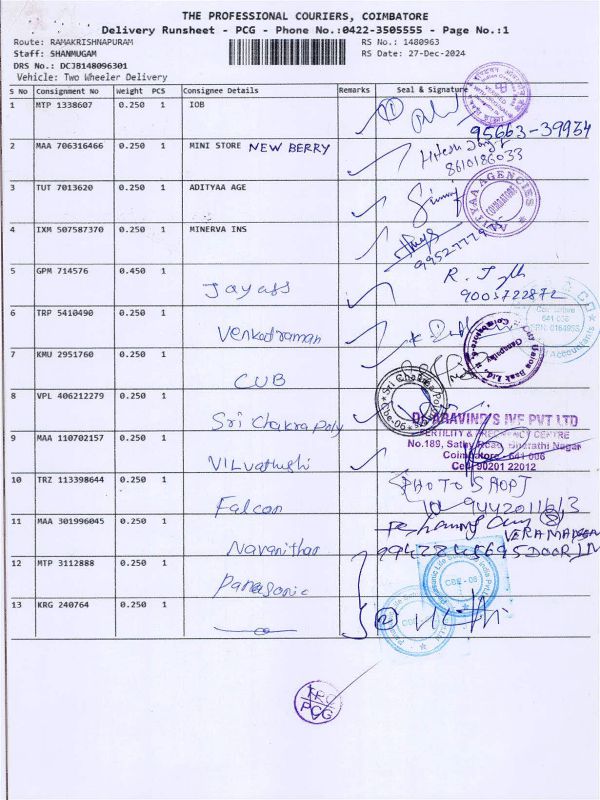 THE PROFESSIONAL COURIERS, COIMBATORE
Delivery Runsheet - PCG - Phone No.:0422-3505555 - Page No.:1
Route: RAMAKRISHNAPURAM
RS No.: 1480963
Staff: SHANMUGAM
RS Date: 27-Dec-2024
DRS No.: DCJB148096301
Vehicle: Two Wheeler Delivery
S No Consignment No Weight PCS Consignee Details Remarks Seal & Signature
1 MTP 1338607 0.250 1 IOB
95663-39934
2 MAA 706316466 0.250 1 MINI STORE NEW BERRY
8610186033
3 TUT 7013620 0.250 1 ADITYAA AGE
ADITYAA AGENCIES
COIMBATORE
4 IXM 507587370 0.250 1 MINERVA INS
5 GPM 714576 0.450 1 Jayass
9003722872
6 TRP 5410490 0.250 1 Venkatraman
Coimbatore
641 036
7 KMU 2951760 0.250 1 CUB
8 VPL 406212279 0.250 1 Sri Chakra Poly
Dr. ARAVIND'S IVF PVT LTD
FERTILITY & PREGNANCY CENTRE
No.189, Sathy Road, Bharathi Nagar
Coimbatore - 641 006
Cell: 90201 22012
9 MAA 110702157 0.250 1 Vilvathushi
10 TRZ 113398644 0.250 1 Falcon
PHOTO SHOP
11 MAA 301996045 0.250 1 Navanithan
12 MTP 3112888 0.250 1 Panasonic
CBE - 06
13 KRG 240764 0.250 1
PCG